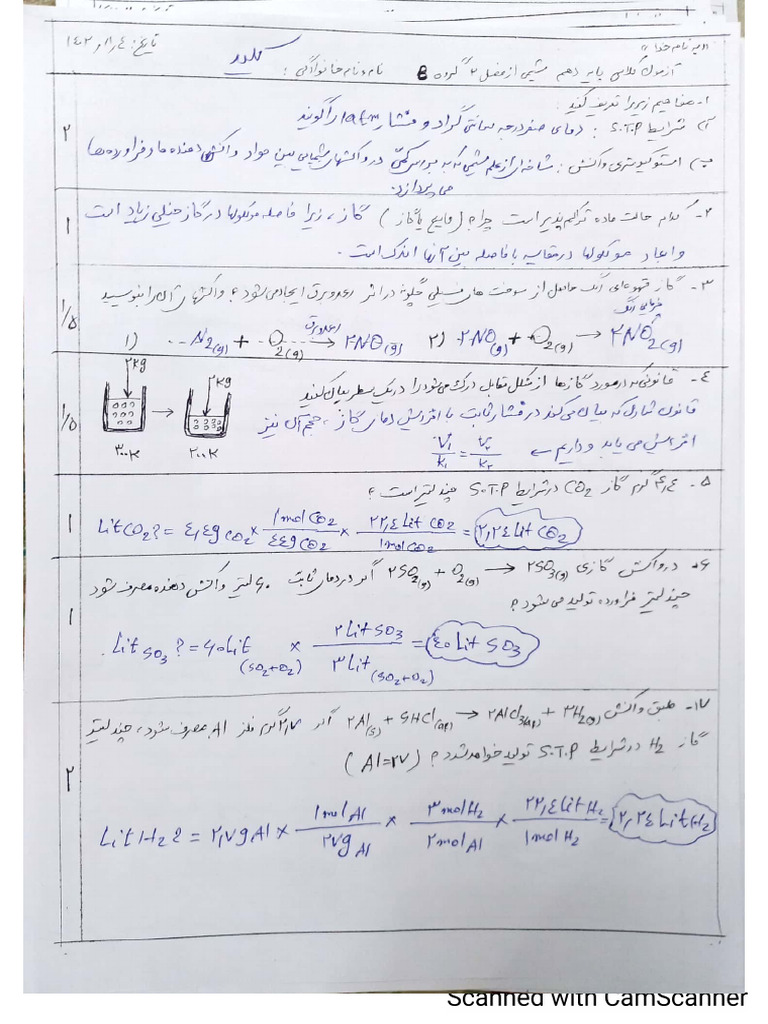 بنام خدا
تاریخ: ۱۴۰۲/۸/۴
آزمون کلاسی پایه دهم شیمی از فصل ۲ گروه B نام و نام خانوادگی: کلید
۱- مفاهیم زیر را تعریف کنید:
آ) شرایط S.T.P: دمای صفر درجه سانتی گراد و فشار 1atm را گویند
ب) استوکیومتری واکنش: شاخه ای از علم شیمی که به بررسی کمّی در واکنشهای شیمیایی بین مواد واکنش دهنده ها و فراورده ها
می پردازد.
۲
۲- کدام حالت ماده تراکم پذیر است چرا؟ (مایع یا گاز) گاز، زیرا فاصله مولکولها در گاز خیلی زیاد است
و ابعاد مولکولها در مقایسه با فاصله بین آنها اندک است.
۱
۳- گاز قهوه ای رنگ حاصل از سوخت های فسیلی چگونه در اثر رعد و برق ایجاد می شود؟ واکنشهای آن را بنویسید
۱) N₂(g) + O₂(g) رعد و برق → ۲NO(g) ۲) ۲NO(g) + O₂(g) → ۲NO₂(g)
۱/۵
۴- قانونی که در مورد گازها از شکل مقابل درک می شود را در یک سطر بیان کنید
قانون شارل که بیان می کند در فشار ثابت با افزایش دمای گاز، حجم آن نیز
افزایش می یابد و داریم ← V₁/k₁ = V₂/k₂
۲kg → ۲kg
۳۰۰K ۲۰۰K
۱/۵
۵- ۴٫۴ گرم گاز CO₂ در شرایط S.T.P چند لیتر است؟
Lit CO₂? = ۴٫۴g CO₂ × ۱mol CO₂/۴۴g CO₂ × ۲۲٫۴ Lit CO₂/۱mol CO₂ = ۲٫۲۴ Lit CO₂
۱
۶- در واکنش گازی ۲SO₂(g) + O₂(g) → ۲SO₃(g) اگر در دمای ثابت ۶۰ لیتر واکنش دهنده مصرف شود
چند لیتر فراورده تولید می شود؟
Lit SO₃? = ۶۰Lit (SO₂+O₂) × ۲Lit SO₃/۳Lit (SO₂+O₂) = ۴۰ Lit SO₃
۱
۷- طبق واکنش ۲Al(s) + ۶HCl(aq) → ۲AlCl₃(aq) + ۳H₂(g) اگر ۲٫۷ گرم فلز Al مصرف شود، چند لیتر
گاز H₂ در شرایط S.T.P تولید خواهد شد؟ (Al=۲۷)
Lit H₂? = ۲٫۷g Al × ۱mol Al/۲۷g Al × ۳mol H₂/۲mol Al × ۲۲٫۴Lit H₂/۱mol H₂ = ۲٫۲۴ Lit H₂
۲
Scanned with CamScanner